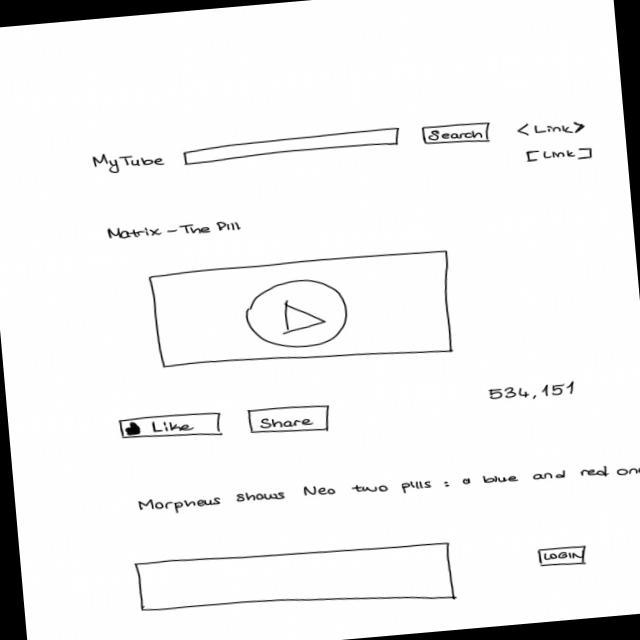 MyTube
Search
<Link>
[Link]
Matrix - The Pill
534,151
Like
Share
Morpheus shows Neo two pills : a blue and red one
LOGIN